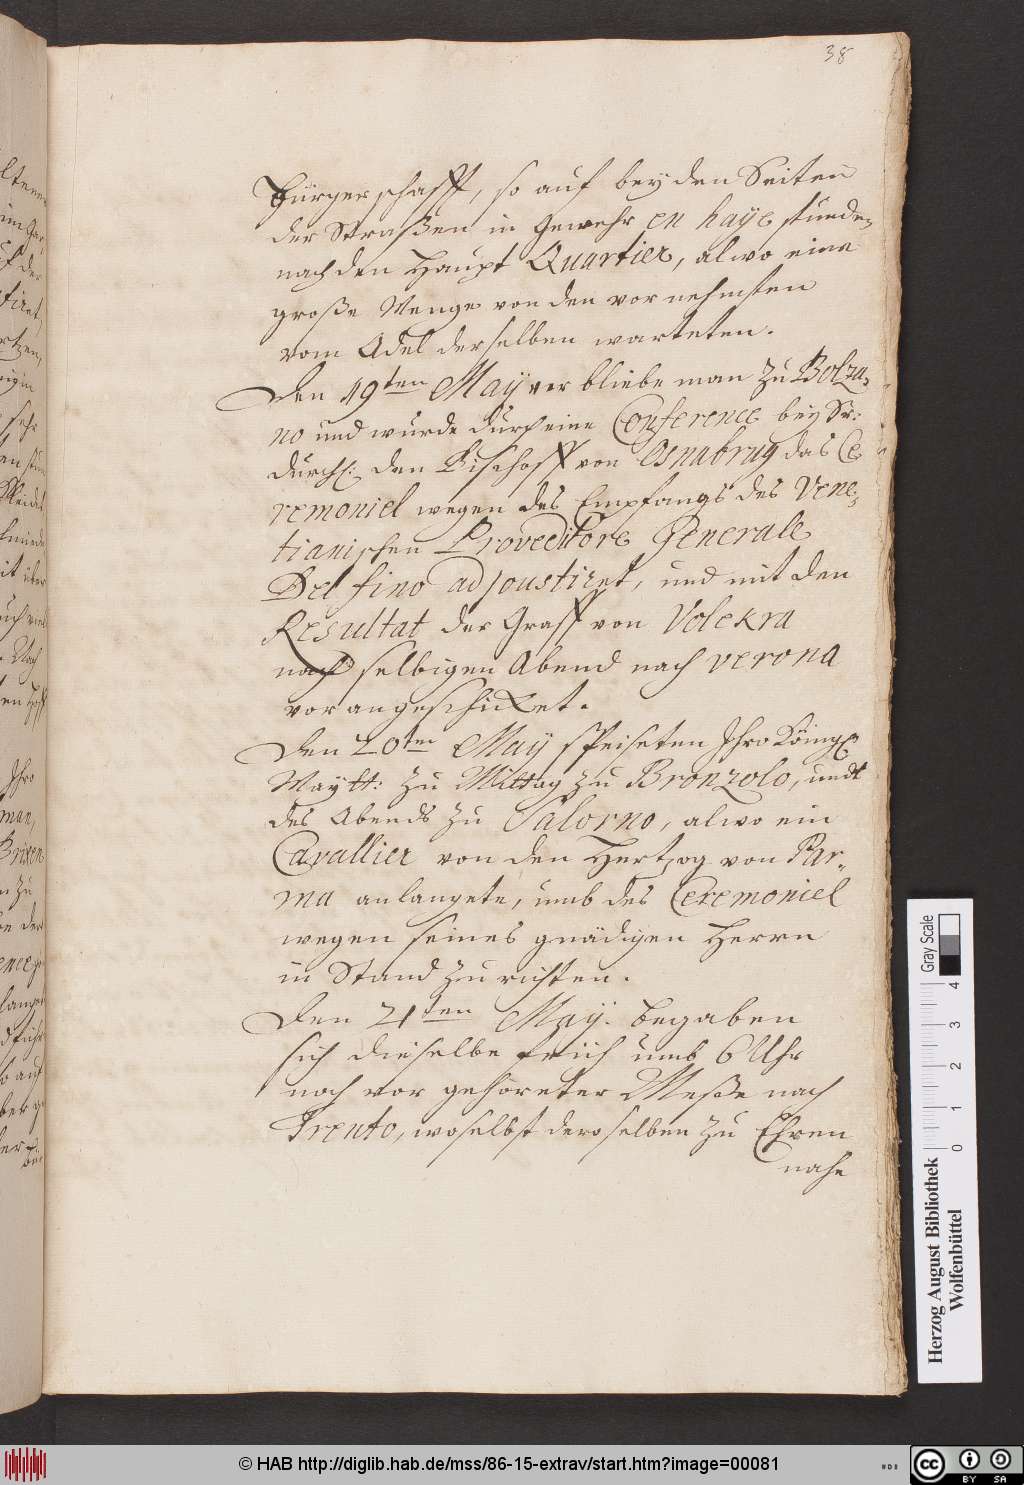 38
Bürgerschafft, so auf beyden Seiten
der Straßen in Gewehr en haye stunden
nach den Haupt Quartier, alwo eine
große Menge von den vornehmsten
vom Adel derselben warteten.
Den 19ten May verbliebe man zu Bolza-
no und wurde durch eine Conference bey Sr:
durchl: den Bischoff von Osnabrug das Ce
remoniel wegen des Empfangs des Vene-
tianischen Proveditore Generale
Delfino adjoustiret, und mit den
Resultat der Graff von Volekra
noch selbigen Abend nach Verona
vorangeschicket.
Den 20ten May speiseten Ihro Königl
Maytt: zu Mittag zu Bronzolo, undt
des Abends zu Salorno, alwo ein
Cavallier von den Hertzog von Par-
ma anlangete, umb des Ceremoniel
wegen seines gnädigen Herrn
in Stand zu richten.
Den 21ten May. begaben
sich dieselbe früh umb 6 Uhr
noch vor gehöreter Meße nach
Trento, woselbst deroselben zu Ehren
nahe
Herzog August Bibliothek
Wolfenbüttel
Gray Scale
0 1 2 3 4
© HAB http://diglib.hab.de/mss/86-15-extrav/start.htm?image=00081
cc BY SA